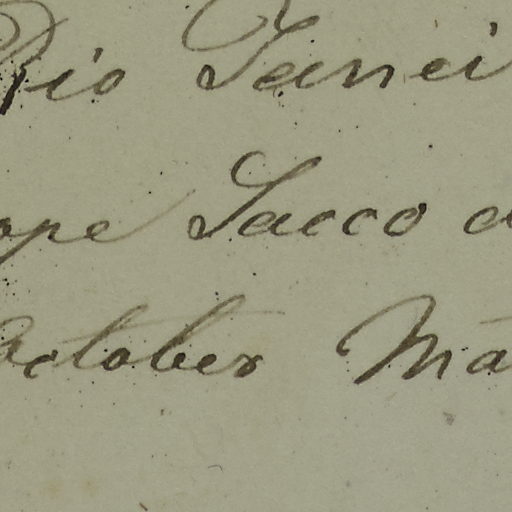 Rio Janei
ope Sacco a
October Ma